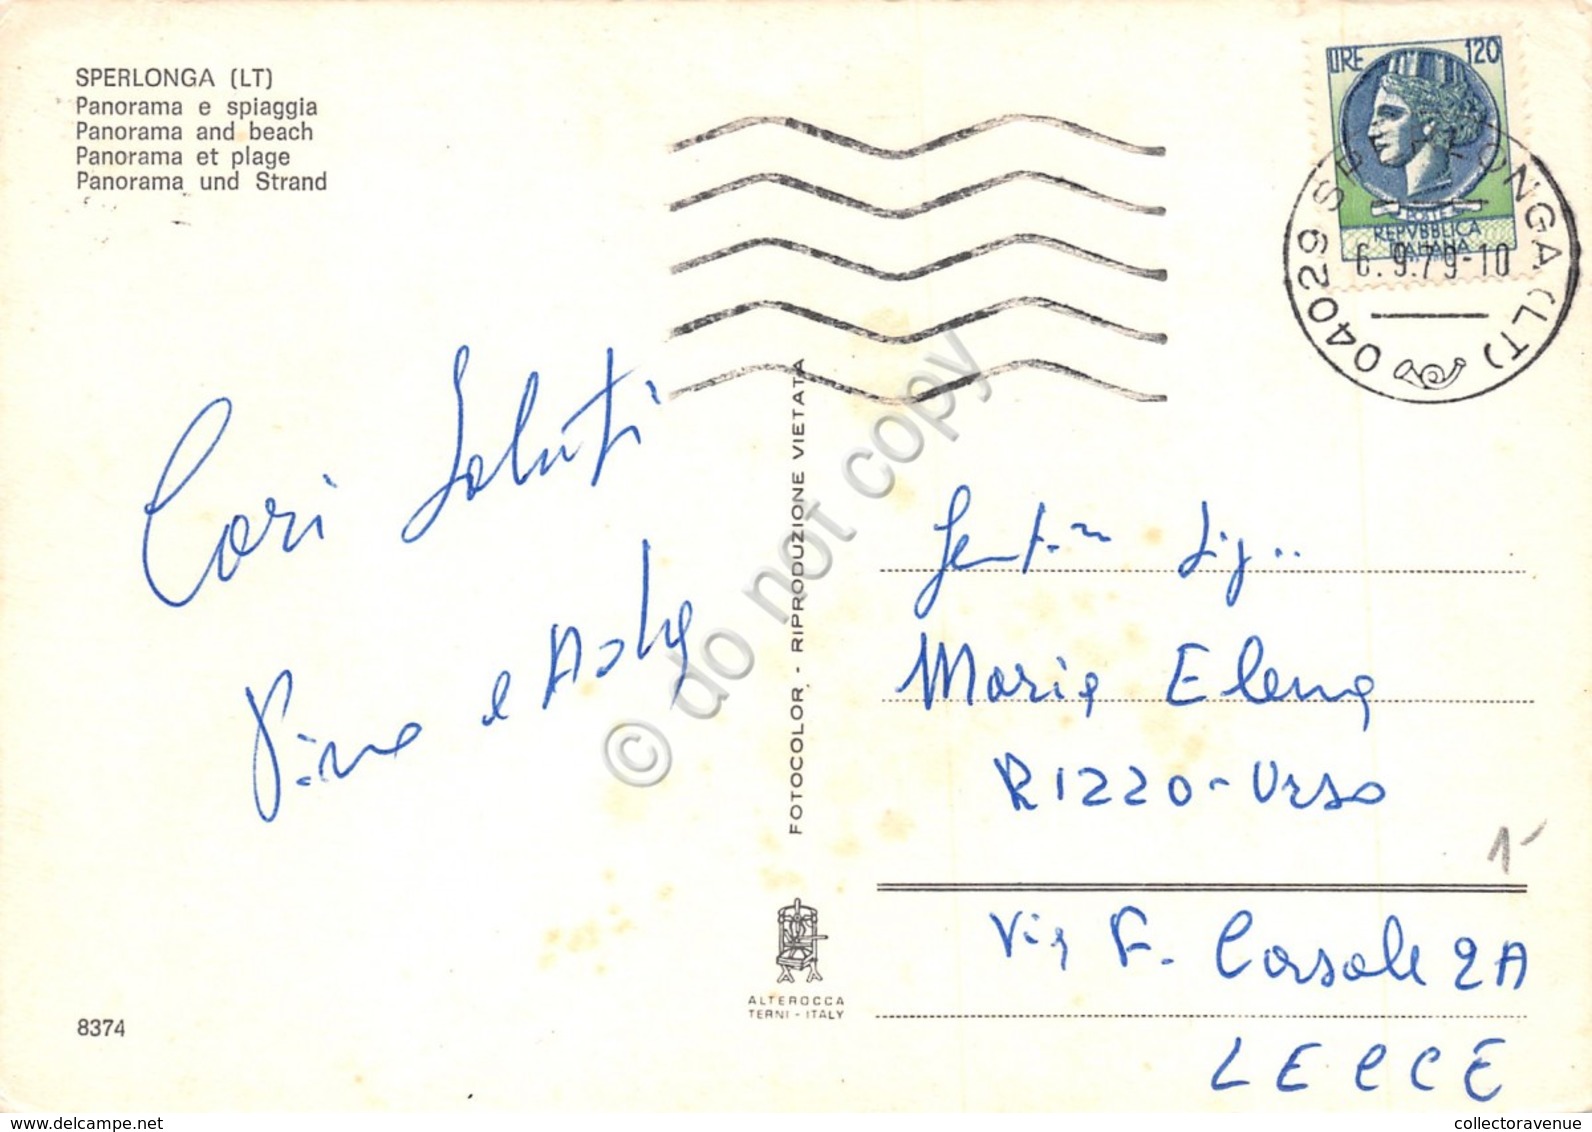 SPERLONGA (LT)
Panorama e spiaggia
Panorama and beach
Panorama et plage
Panorama und Strand
LIRE 120
POSTE
REPVBBLICA
ITALIANA
04029 SPERLONGA (LT)
6.9.79-10
Cari Saluti
Pina e
FOTOCOLOR - RIPRODUZIONE VIETATA
© do not copy
Gent.ma Sig..
Maria Elena
RIZZO-URSO
1
Via F. Casale 2A
LECCE
ALTEROCCA
TERNI - ITALY
8374
www.delcampe.net
collectoravenue